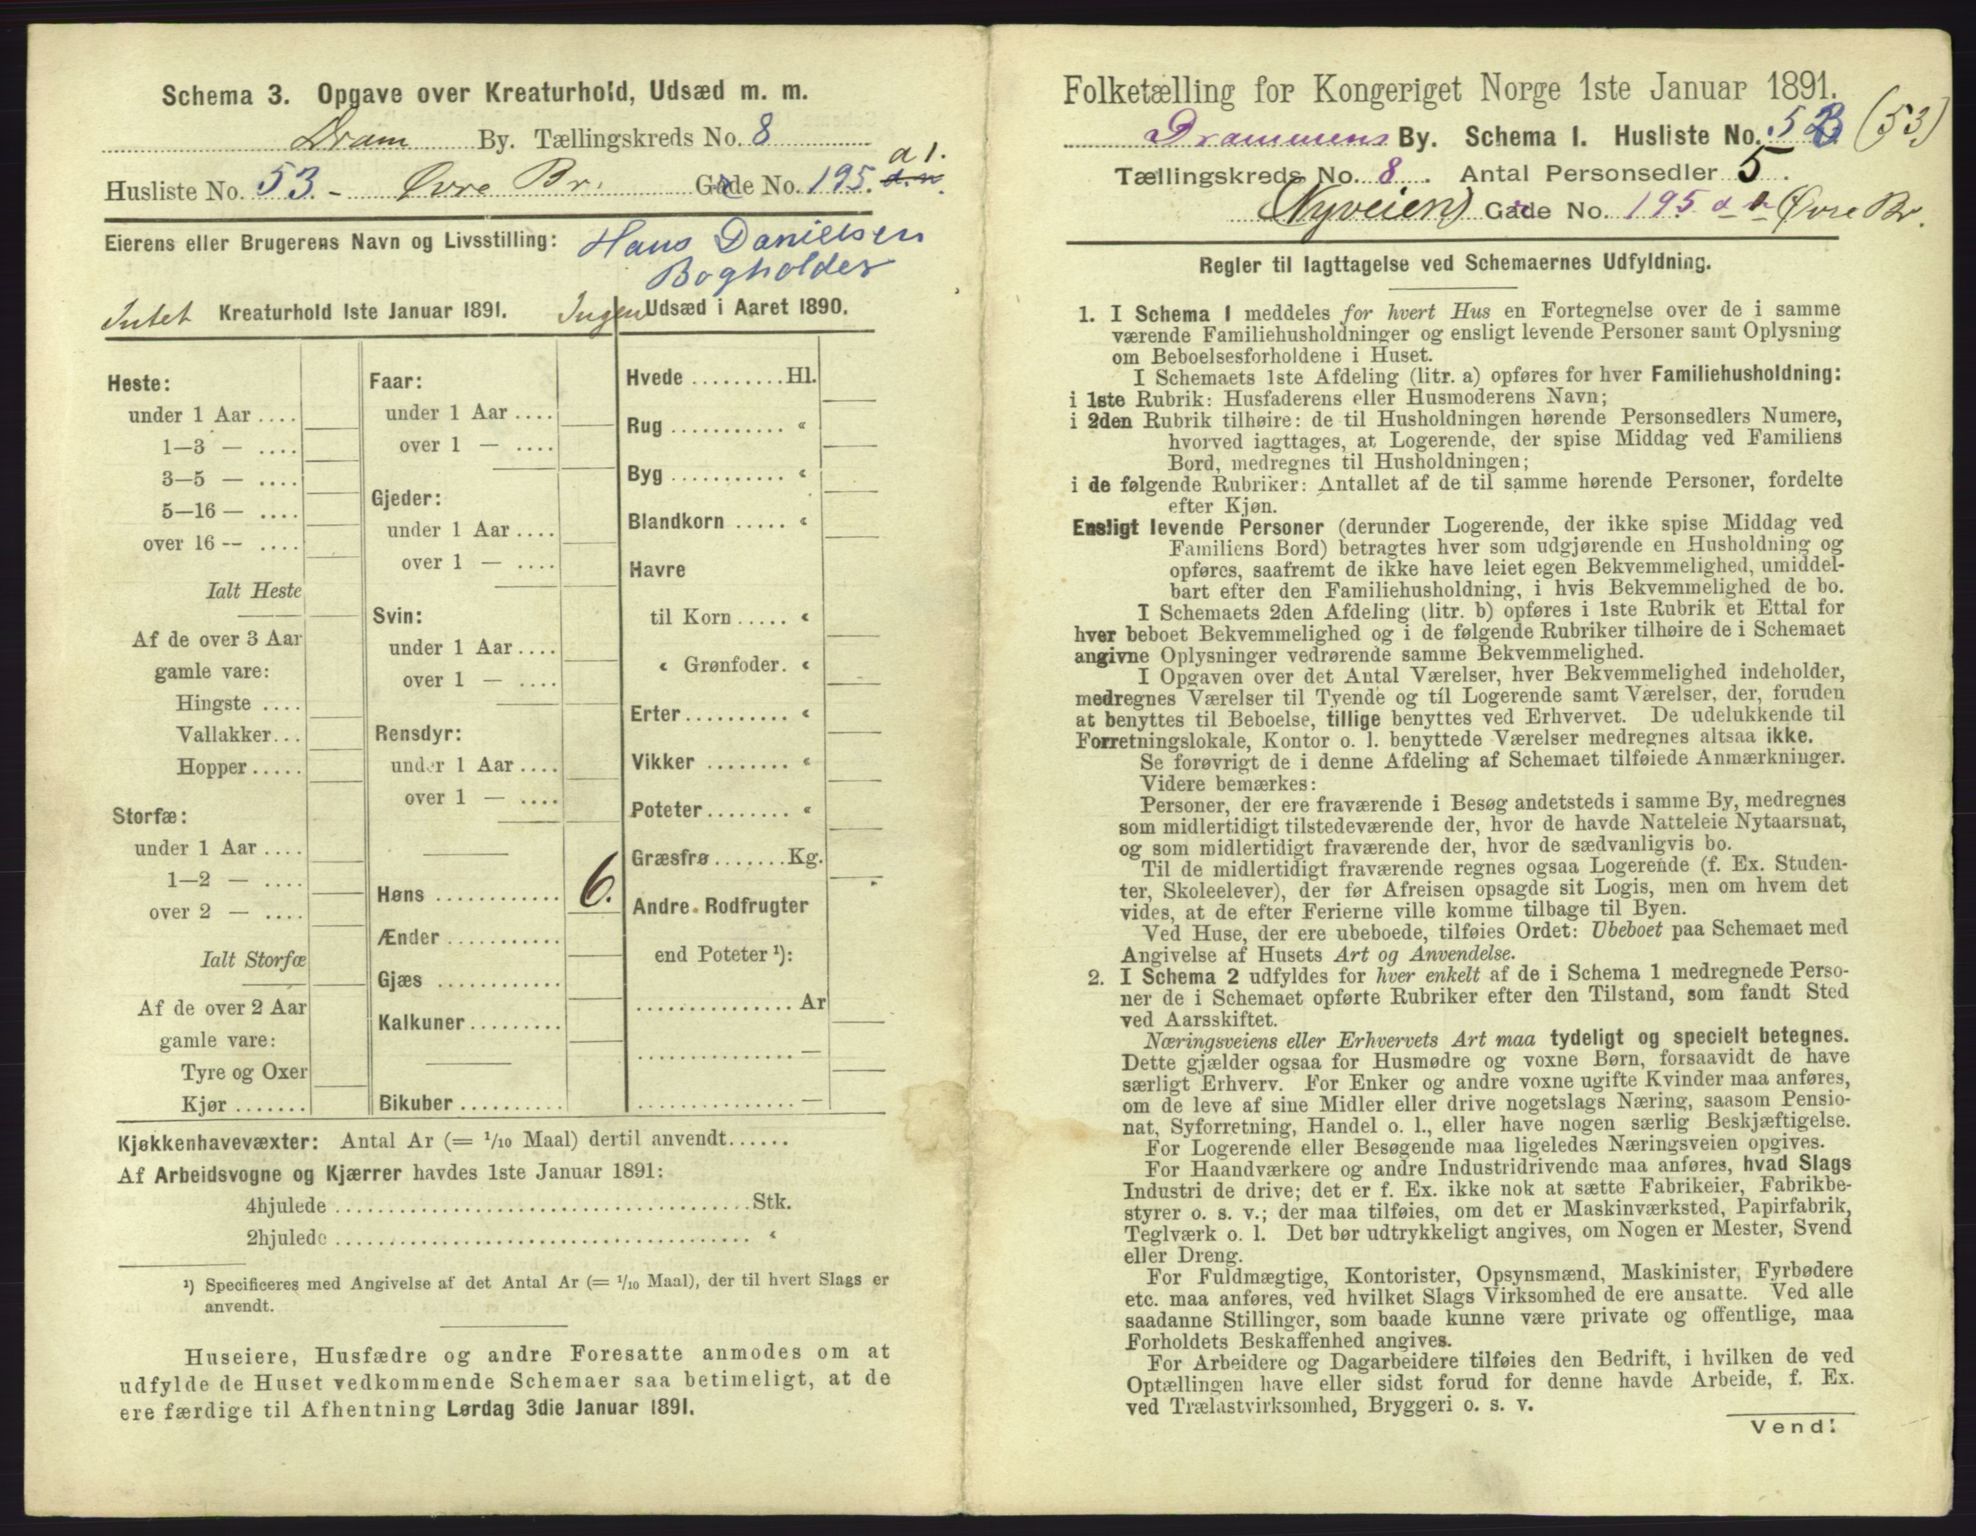 Schema 3. Opgave over Kreaturhold, Udsæd m. m.
Dram By. Tællingskreds No. 8
a 1.
Husliste No. 53. - Øvre Br. Gade No. 195. d. n.
Eierens eller Brugerens Navn og Livsstilling: Hans Danielsen
Bogholder
Intet Kreaturhold 1ste Januar 1891. Ingen Udsæd i Aaret 1890.
Heste:
under 1 Aar ....
1—3 — ....
3—5 — ....
5—16 — ....
over 16 -- ....
Ialt Heste
Af de over 3 Aar
gamle vare:
Hingste ....
Vallakker...
Hopper.....
Storfæ:
under 1 Aar ....
1—2 — ....
over 2 — ....
Ialt Storfæ
Af de over 2 Aar
gamle vare:
Tyre og Oxer
Kjør .......
Faar:
under 1 Aar ....
over 1 — ....
Gjeder:
under 1 Aar ....
over 1 — ....
Svin:
under 1 Aar ....
over 1 — ....
Rensdyr:
under 1 Aar ....
over 1 — ....
Høns ............ 6.
Ænder ...........
Gjæs ............
Kalkuner.........
Bikuber..........
Hvede .........Hl.
Rug ........... «
Byg ........... «
Blandkorn ..... «
Havre
til Korn ..... «
« Grønfoder. «
Erter.......... «
Vikker ........ «
Poteter........ «
Græsfrø.......Kg.
Andre Rodfrugter
end Poteter ¹):
..............Ar
.............. —
.............. —
Kjøkkenhavevæxter: Antal Ar (= 1/10 Maal) dertil anvendt......
Af Arbeidsvogne og Kjærrer havdes 1ste Januar 1891:
4hjulede ........................................Stk.
2hjulede ........................................ «
¹) Specificeres med Angivelse af det Antal Ar (= 1/10 Maal), der til hvert Slags er
anvendt.
Huseiere, Husfædre og andre Foresatte anmodes om at
udfylde de Huset vedkommende Schemaer saa betimeligt, at de
ere færdige til Afhentning Lørdag 3die Januar 1891.
Folketælling for Kongeriget Norge 1ste Januar 1891.
Drammens By. Schema 1. Husliste No. (53)
Tællingskreds No. 8. Antal Personsedler 5.
(Nyveien) Gade No. 195 Øvre Br.
Regler til Iagttagelse ved Schemaernes Udfyldning.
1. I Schema 1 meddeles for hvert Hus en Fortegnelse over de i samme
værende Familiehusholdninger og ensligt levende Personer samt Oplysning
om Beboelsesforholdene i Huset.
I Schemaets 1ste Afdeling (litr. a) opføres for hver Familiehusholdning:
i 1ste Rubrik: Husfaderens eller Husmoderens Navn;
i 2den Rubrik tilhøire: de til Husholdningen hørende Personsedlers Numere,
hvorved iagttages, at Logerende, der spise Middag ved Familiens
Bord, medregnes til Husholdningen;
i de følgende Rubriker: Antallet af de til samme hørende Personer, fordelte
efter Kjøn.
Ensligt levende Personer (derunder Logerende, der ikke spise Middag ved
Familiens Bord) betragtes hver som udgjørende en Husholdning og
opføres, saafremt de ikke have leiet egen Bekvemmelighed, umiddel-
bart efter den Familiehusholdning, i hvis Bekvemmelighed de bo.
I Schemaets 2den Afdeling (litr. b) opføres i 1ste Rubrik et Ettal for
hver beboet Bekvemmelighed og i de følgende Rubriker tilhøire de i Schemaet
angivne Oplysninger vedrørende samme Bekvemmelighed.
I Opgaven over det Antal Værelser, hver Bekvemmelighed indeholder,
medregnes Værelser til Tyende og til Logerende samt Værelser, der, foruden
at benyttes til Beboelse, tillige benyttes ved Erhvervet. De udelukkende til
Forretningslokale, Kontor o. l. benyttede Værelser medregnes altsaa ikke.
Se forøvrigt de i denne Afdeling af Schemaet tilføiede Anmærkninger.
Videre bemærkes:
Personer, der ere fraværende i Besøg andetsteds i samme By, medregnes
som midlertidigt tilstedeværende der, hvor de havde Natteleie Nytaarsnat,
og som midlertidigt fraværende der, hvor de sædvanligvis bo.
Til de midlertidigt fraværende regnes ogsaa Logerende (f. Ex. Studen-
ter, Skoleelever), der før Afreisen opsagde sit Logis, men om hvem det
vides, at de efter Ferierne ville komme tilbage til Byen.
Ved Huse, der ere ubeboede, tilføies Ordet: Ubeboet paa Schemaet med
Angivelse af Husets Art og Anvendelse.
2. I Schema 2 udfyldes for hver enkelt af de i Schema 1 medregnede Perso-
ner de i Schemaet opførte Rubriker efter den Tilstand, som fandt Sted
ved Aarsskiftet.
Næringsveiens eller Erhvervets Art maa tydeligt og specielt betegnes.
Dette gjælder ogsaa for Husmødre og voxne Børn, forsaavidt de have
særligt Erhverv. For Enker og andre voxne ugifte Kvinder maa anføres,
om de leve af sine Midler eller drive nogetslags Næring, saasom Pensio-
nat, Syforretning, Handel o. l., eller have nogen særlig Beskjæftigelse.
For Logerende eller Besøgende maa ligeledes Næringsveien opgives.
For Haandværkere og andre Industridrivende maa anføres, hvad Slags
Industri de drive; det er f. Ex. ikke nok at sætte Fabrikeier, Fabrikbe-
styrer o. s. v.; der maa tilføies, om det er Maskinværksted, Papirfabrik,
Teglværk o. l. Det bør udtrykkeligt angives, om Nogen er Mester, Svend
eller Dreng.
For Fuldmægtige, Kontorister, Opsynsmænd, Maskinister, Fyrbødere
etc. maa anføres, ved hvilket Slags Virksomhed de ere ansatte. Ved alle
saadanne Stillinger, som baade kunne være private og offentlige, maa
Forholdets Beskaffenhed angives.
For Arbeidere og Dagarbeidere tilføies den Bedrift, i hvilken de ved
Optællingen have eller sidst forud for denne havde Arbeide, f. Ex.
ved Trælastvirksomhed, Bryggeri o. s. v.
Vend!